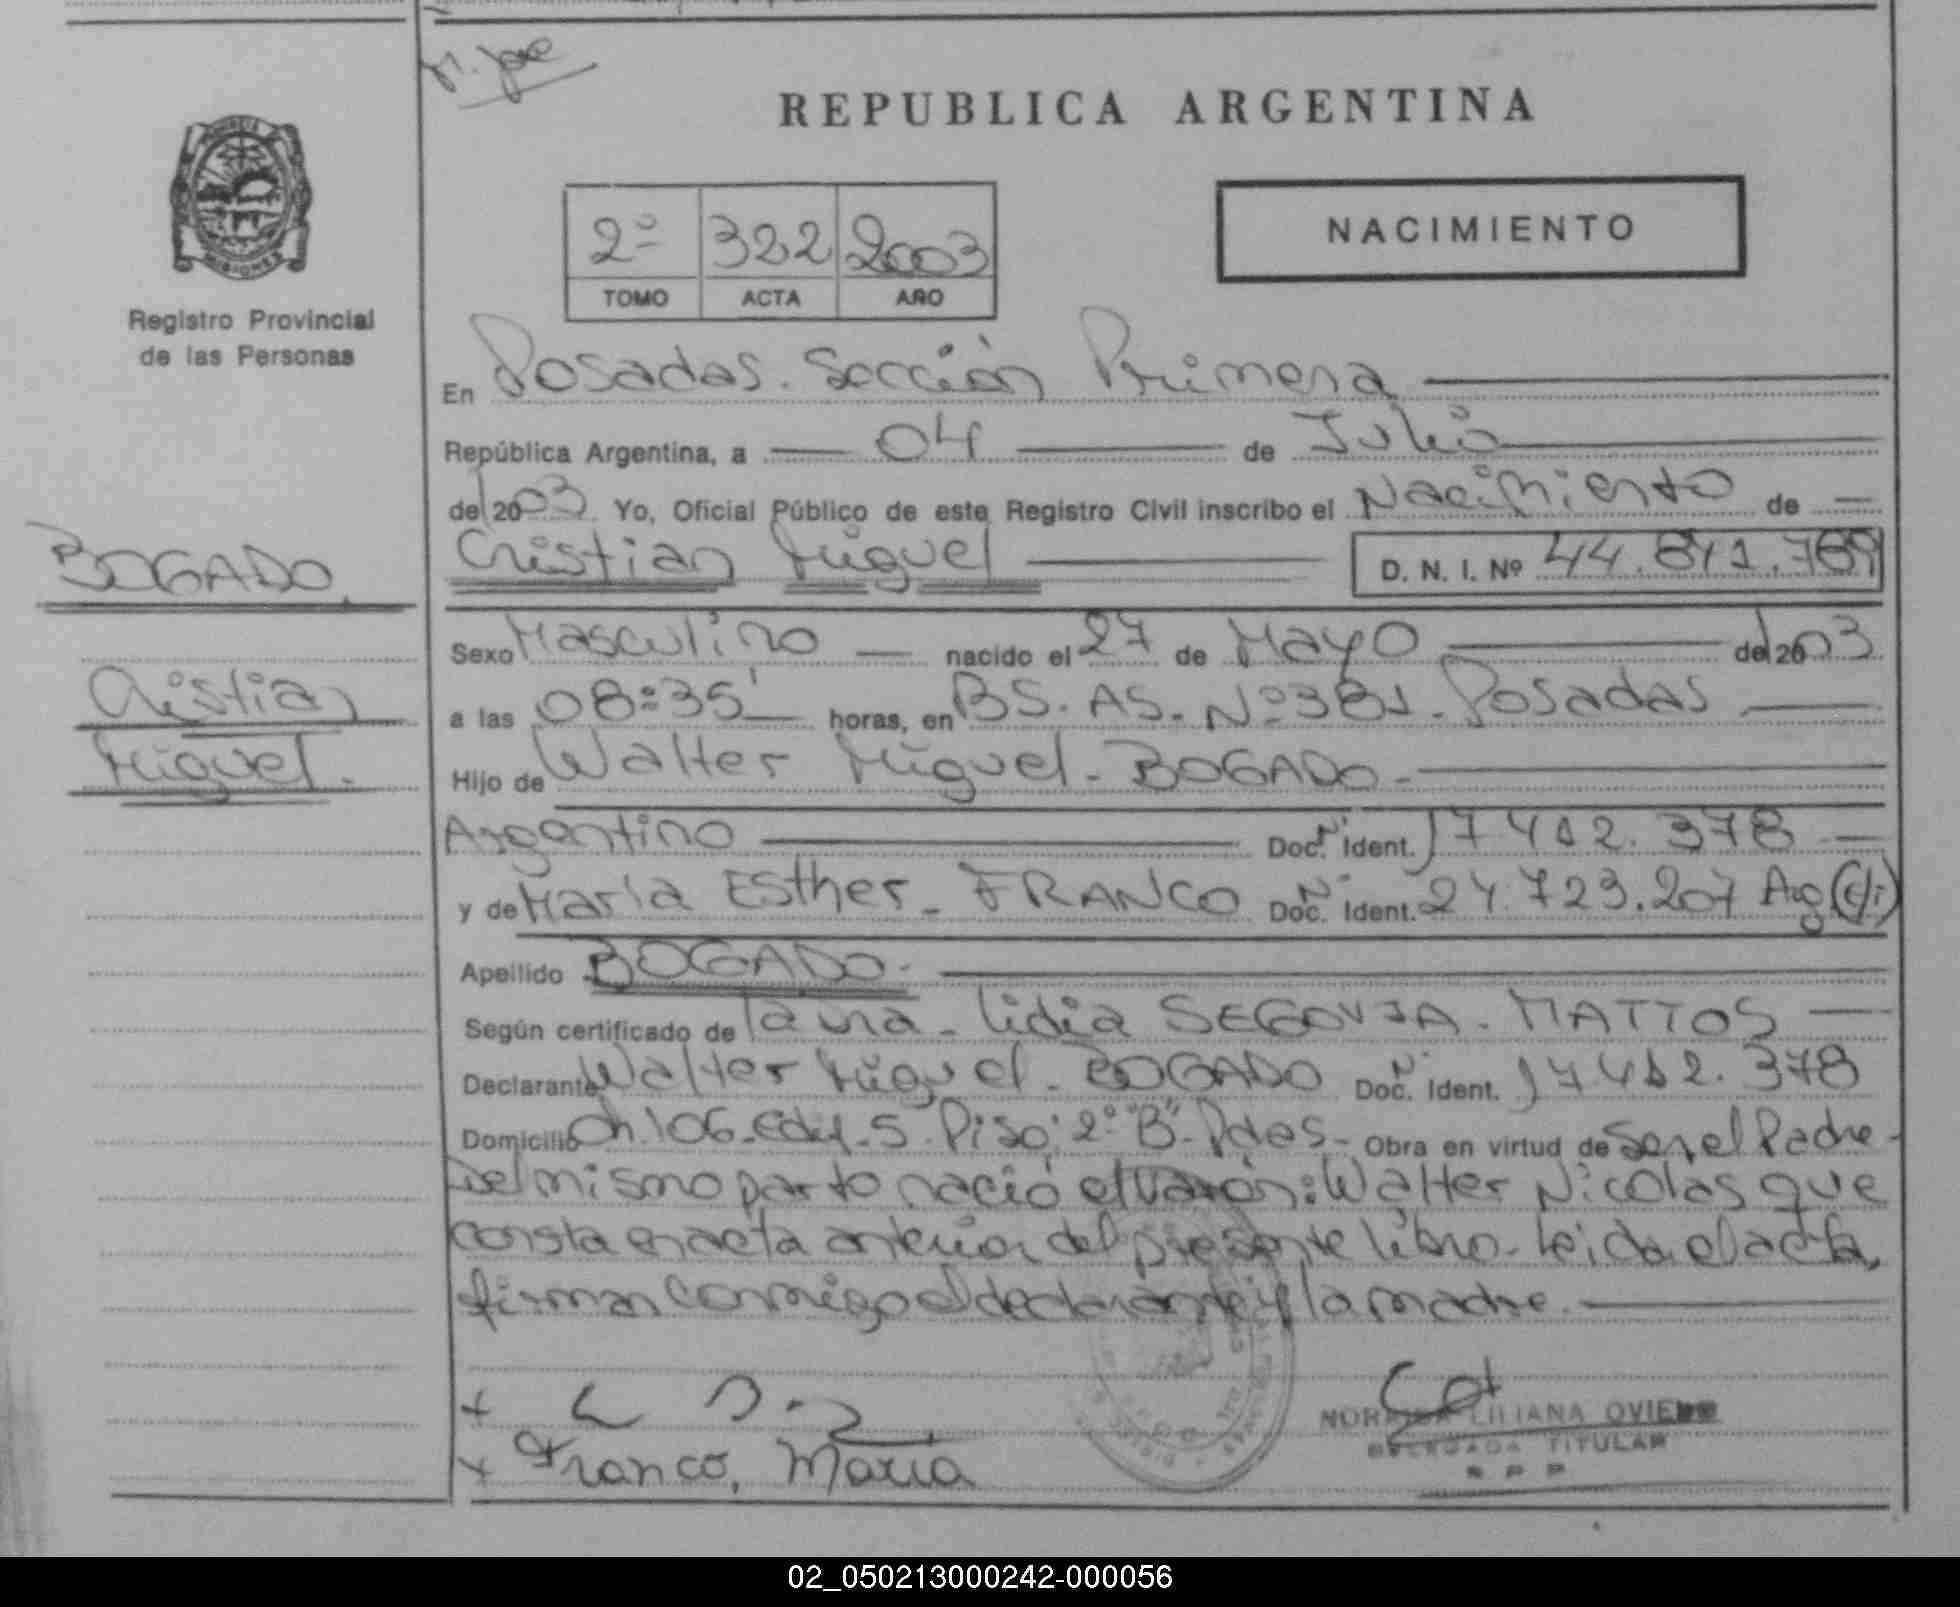 REPUBLICA ARGENTINA
2º 322 2003
TOMO ACTA AÑO
NACIMIENTO
MISIONES
Registro Provincial
de las Personas
En Posadas. Sección Primera
República Argentina, a 04 de Julio
del 2003 Yo, Oficial Público de este Registro Civil inscribo el Nacimiento de
BOGADO
Cristian Miguel D. N. I. Nº 44.841.769
Sexo Masculino nacido el 27 de Mayo del 2003
Cristian
a las 08:35' horas, en BS. AS. Nº 381. Posadas
Miguel.
Hijo de Walter Miguel - BOGADO.
Argentino Doc. Nº Ident. 17.412.378
y de María Esther - FRANCO Doc. Nº Ident. 24.723.207 Arg
Apellido BOGADO.
Según certificado de Lidia SEGOVIA. MATTOS
Declarante Walter Miguel. BOGADO Doc. Nº Ident. 17.412.378
Domicilio Ch. 106. Edif. 5. Piso: 2º "B". Pdas. Obra en virtud de Ser el Padre -
Del mismo parto nació el Varón: Walter Nicolas que
consta en acta anterior del presente libro. Leida el acta,
firman conmigo el declarante y la madre.
Franco, María
LILIANA OVIEDO
DELEGADA TITULAR
R P P
02_050213000242-000056